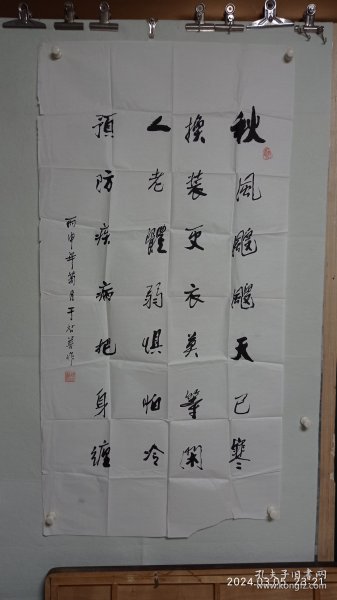 秋風颼颼天已寒
換裝更衣莫等閑
人老體弱懼怕冷
預防疾病把身纏
丙申年菊月于
作
2024.03.05 23:21
孔夫子旧书网
www.kongfz.com